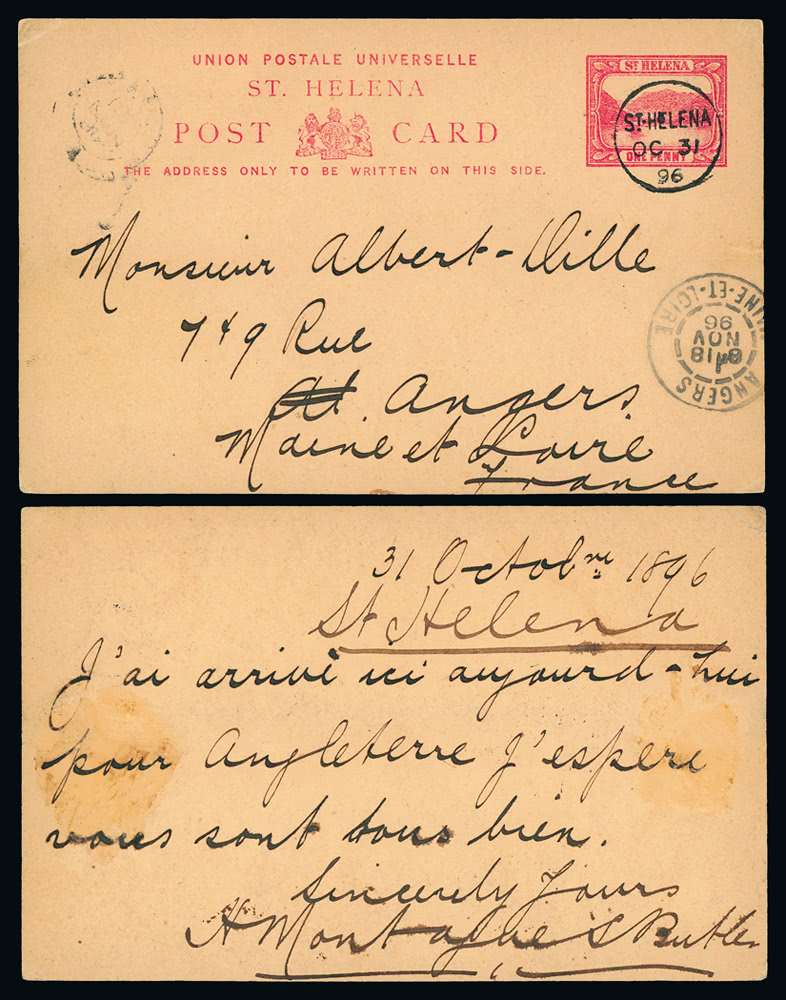 UNION POSTALE UNIVERSELLE
ST. HELENA
POST CARD
THE ADDRESS ONLY TO BE WRITTEN ON THIS SIDE.
ST HELENA
ONE PENNY
ST. HELENA
OC 31
96
Monsieur Albert-Dille
749 Rue
At. Angers
Maine et Loire
France
ANGERS
MAINE-ET-LOIRE
18
NOV
96
31 Octobre 1896
St Helena
J'ai arrivé ici aujourd-hui
pour Angleterre J'espere
vous sont tous bien.
Sincerely Yours
H Montague S Butler